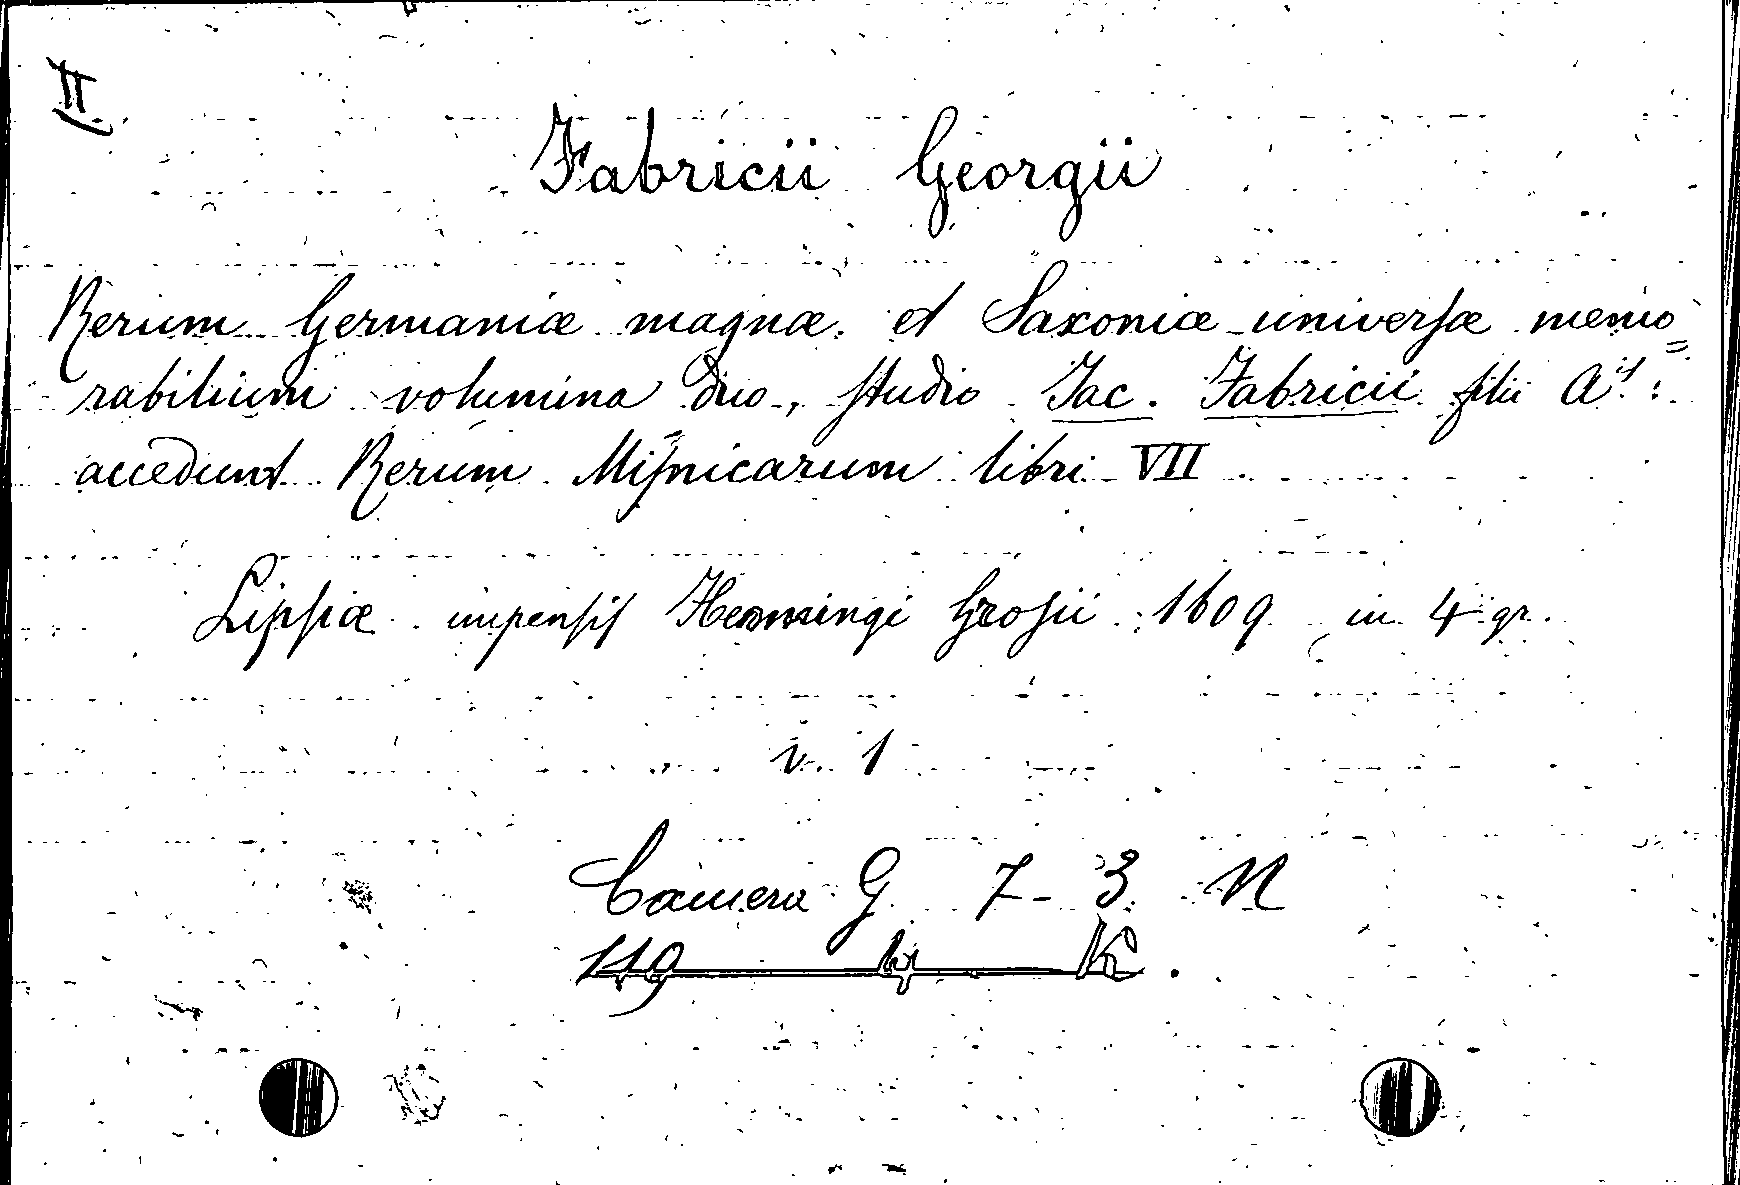 II
Fabricii Georgii
Rerum Germaniæ magnæ et Saxoniæ universæ memo=
rabilium volumina duo, studio Jac. Fabricii filii A.ris:
accedunt Rerum Misnicarum libri VII
Lipsiæ impensis Henningi Grosii 1609 in 4 gr.
v. 1
Camera G 7-3 N
119 4 K.